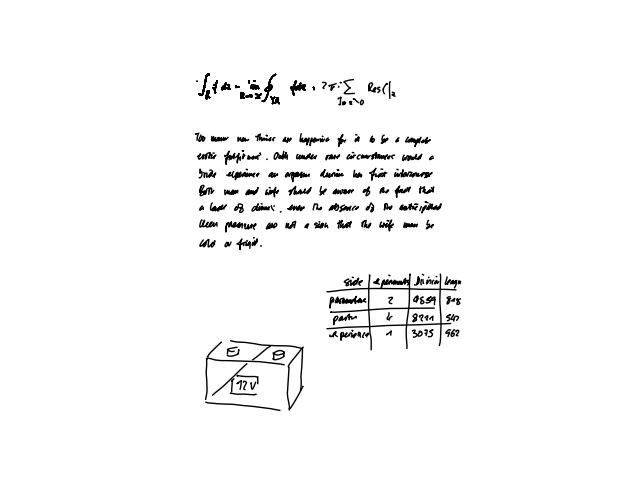 ∫_R f dz = lim_{R→∞} ∮_{γR} f dz = 2πi ∑_{Im z>0} Res f|_z
Too many new things are happening for it to be a complete
erotic fulfilment. Only under rare circumstances would a
bride experience an orgasm during her first intercourse
Both man and wife should be aware of the fact that
a lack of climax, even the absence of the anticipated
keen pleasure are not a sign that the wife may be
cold or frigid.
side experiments Division length
2 9859 818
4 8211 547
experience 1 3075 962
12V